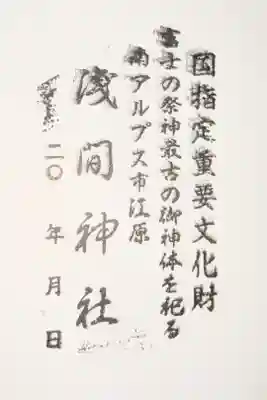 国指定重要文化財
富士の祭神最古の御神体を祀る
南アルプス市江原
浅間神社
二〇 年 月 日